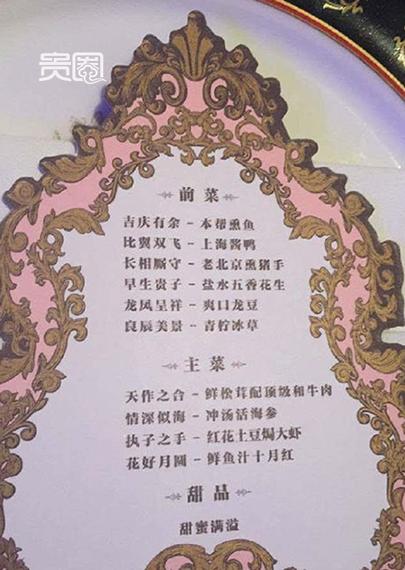 贵圈
前菜
吉庆有余-本帮熏鱼
比翼双飞-上海酱鸭
长相厮守-老北京熏猪手
早生贵子-盐水五香花生
龙凤呈祥-爽口龙豆
良辰美景-青柠冰草
主菜
天作之合-鲜松茸配顶级和牛肉
情深似海-冲汤活海参
执子之手-红花土豆焗大虾
花好月圆-鲜鱼汁十月红
甜品
甜蜜满溢